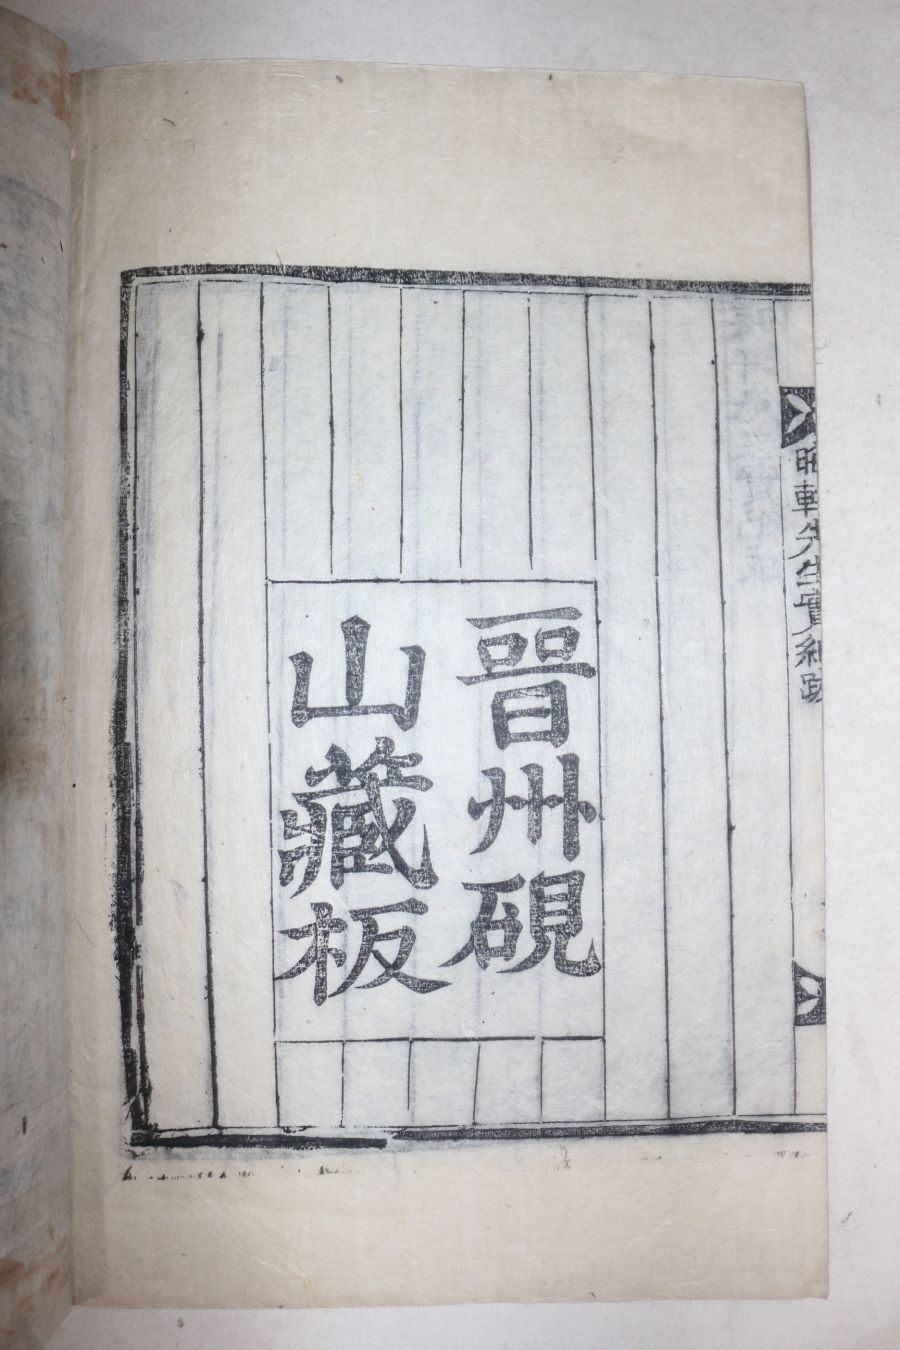 晋州硯
山藏板
軒先生實紀跋